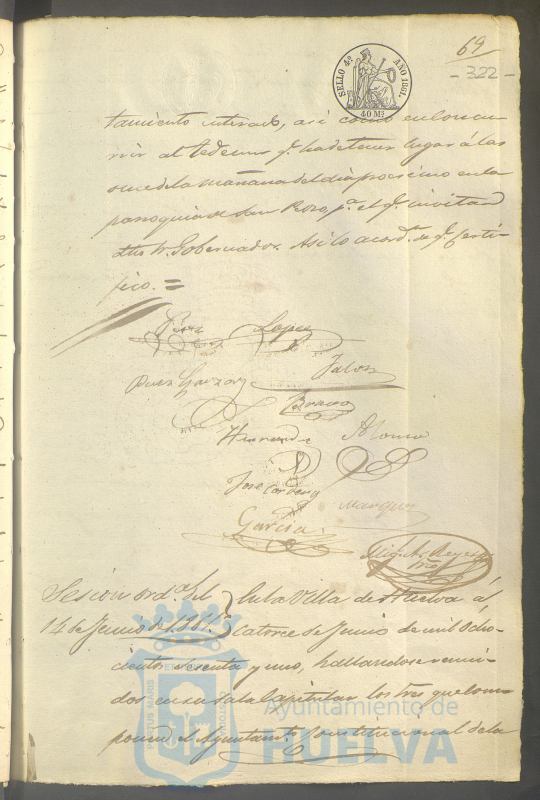 69
- 322 -
SELLO 4º AÑO 1861.
40 Ms
tamiento interado, así como en concur
rir al Tedeum q. ha de tener lugar á las
once de la mañana del dia procsimo en la
parroquia de San Pedro, pª el q. invitan
Sr. Gobernador. Asi lo acord. de q. certi-
fico. =
Perez Lopez
Garzon Jalon
Bravo
Hernandez Alonso
Jose Cordero
Marquez
García
Mig. A. Reyes
Srio
Sesion ordª del
14 de Junio de 1861.
En la Villa de Huelva á
catorce de Junio de mil ocho-
cientos sesenta y uno, hallandose reuni-
dos en su sala Capitular los Sres que com-
ponen el Ayuntamto Constitucional de la
PORTUS MARIS
Ayuntamiento de
HUELVA